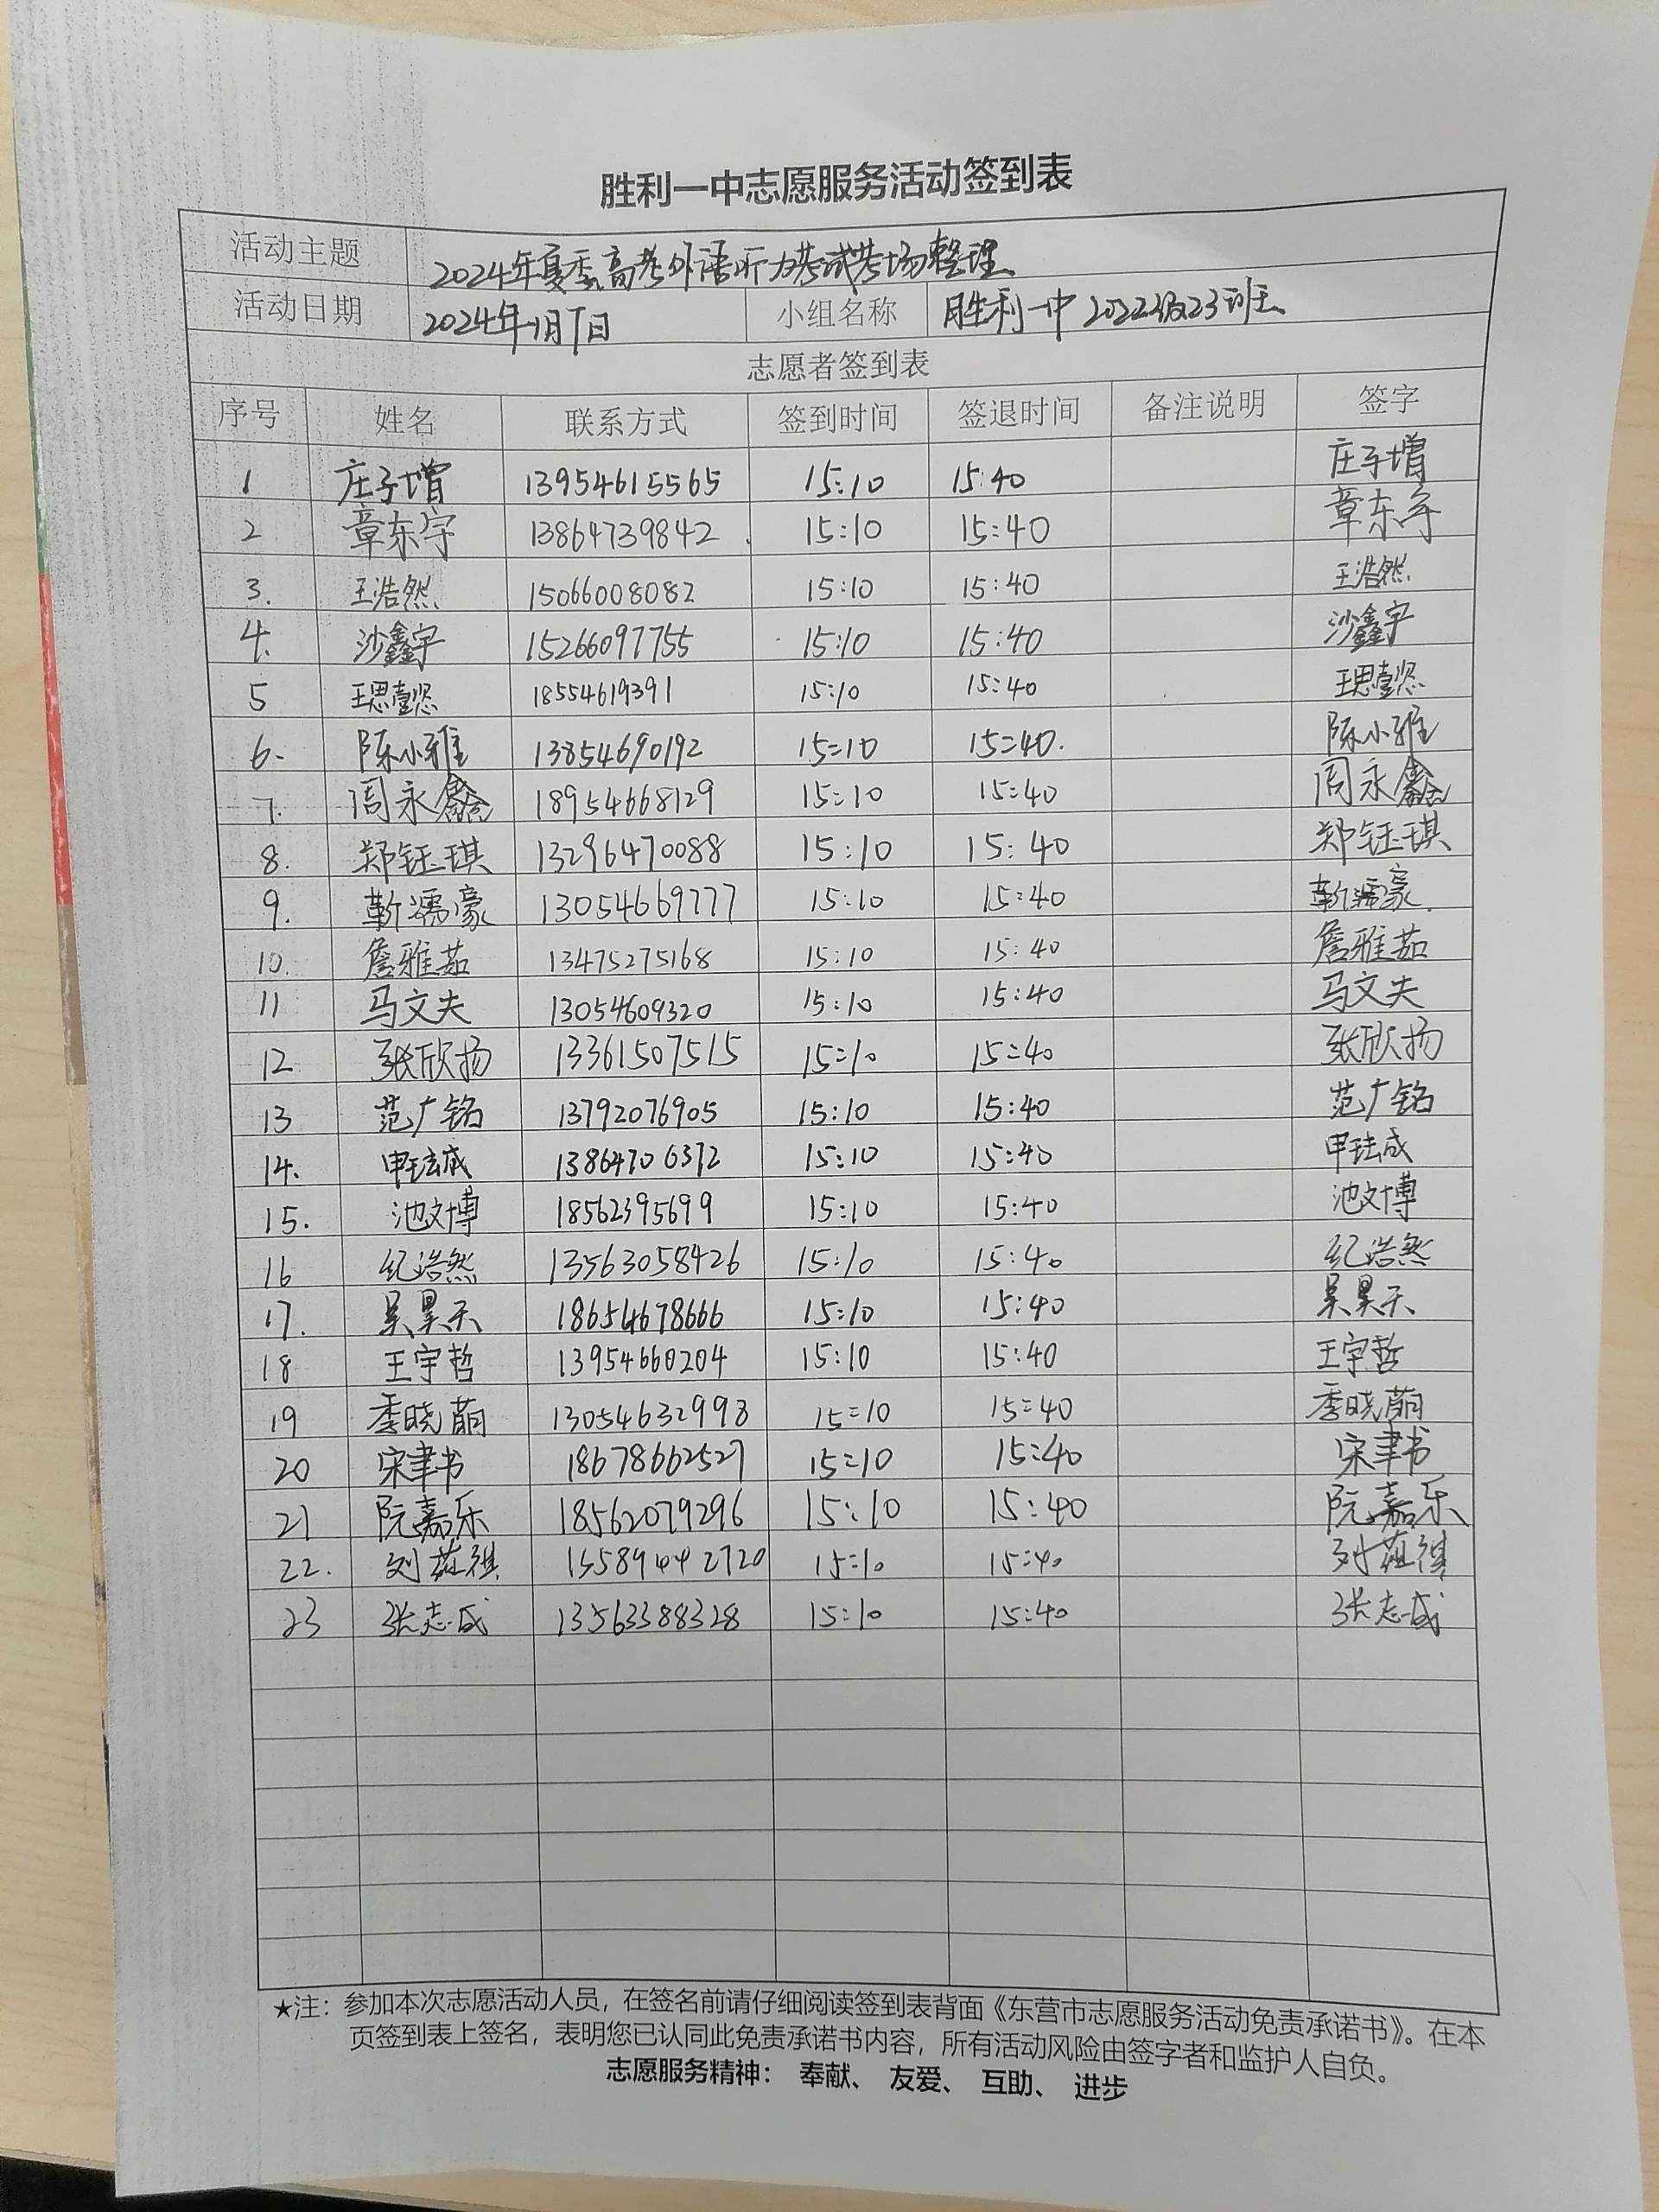 胜利一中志愿服务活动签到表
活动主题 2024年夏季高考外语听力考试考场整理
活动日期 2024年1月7日 小组名称 胜利一中2022级23班
志愿者签到表
序号 姓名 联系方式 签到时间 签退时间 备注说明 签字
1 庄子增 13954615565 15:10 15:40 庄子增
2 章东宇 13864739842 15:10 15:40 章东宇
3. 王浩然 15066008082 15:10 15:40 王浩然
4. 沙鑫宇 15266097755 15:10 15:40 沙鑫宇
5 王思懿 18554619391 15:10 15:40 王思懿
6. 陈小雅 13854690192 15:10 15:40. 陈小雅
7. 周永鑫 18954668129 15:10 15:40 周永鑫
8. 郑钰琪 13296470088 15:10 15:40 郑钰琪
9. 靳濡豪 13054669777 15:10 15:40 靳濡豪
10. 詹雅茹 13475275168 15:10 15:40 詹雅茹
11 马文夫 13054609320 15:10 15:40 马文夫
12 张欣扬 13361507515 15:10 15:40 张欣扬
13 范广铭 13792076905 15:10 15:40 范广铭
14. 申珐成 13864706372 15:10 15:40 申珐成
15. 池文博 18562395699 15:10 15:40 池文博
16 纪浩然 13563058426 15:10 15:40 纪浩然
17. 吴昊天 18654678666 15:10 15:40 吴昊天
18 王宇哲 13954660204 15:10 15:40 王宇哲
19 季晓萌 13054632998 15:10 15:40 季晓萌
20 宋聿书 18678662527 15:10 15:40 宋聿书
21 阮嘉乐 18562079296 15:10 15:40 阮嘉乐
22. 刘蕴祺 15589442720 15:10 15:40 刘蕴祺
23 张志成 13563388328 15:10 15:40 张志成
★注：参加本次志愿活动人员，在签名前请仔细阅读签到表背面《东营市志愿服务活动免责承诺书》。在本
页签到表上签名，表明您已认同此免责承诺书内容，所有活动风险由签字者和监护人自负。
志愿服务精神： 奉献、 友爱、 互助、 进步